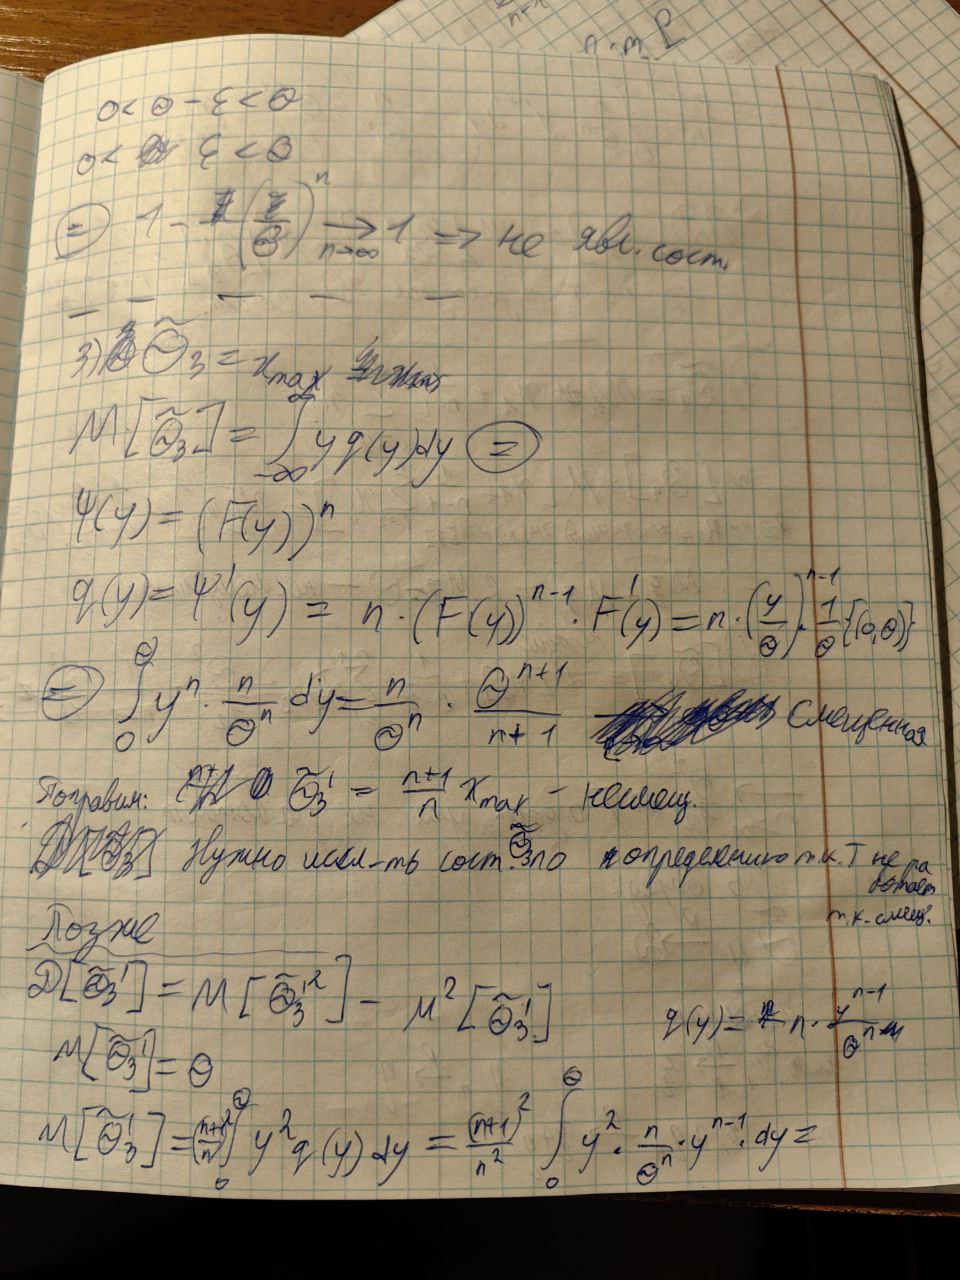 n+1
n·m.
0<Θ-ε<Θ
0< ε<Θ
= 1-( /Θ)^n →_{n→∞} 1 => не явл. сост.
— — — — —
3) Θ̃₃ = x_max
M[Θ̃₃] = ∫_{-∞}^{∞} y q(y)dy =
Ψ(y) = (F(y))^n
q(y) = Ψ'(y) = n·(F(y))^{n-1}·F'(y) = n·(y/Θ)^{n-1}·1/Θ{(0,Θ)}
= ∫_0^Θ y^n · n/Θ^n dy = n/Θ^n · Θ^{n+1}/(n+1) смещенная
Поправим: Θ̃₃' = (n+1)/n x_max - несмещ.
Нужно иссл-ть сост. Θ̃₃ по определению т.к. T не работает т.к. смещ.
Позже
Д[Θ̃₃'] = M[Θ̃₃'²] - M²[Θ̃₃']
q(y) = n · y^{n-1}/Θ^n
M[Θ̃₃'] = Θ
M[Θ̃₃'] = ((n+1)/n)² ∫_0^Θ y² q(y) dy = (n+1)²/n² ∫_0^Θ y² · n/Θ^n · y^{n-1} · dy =